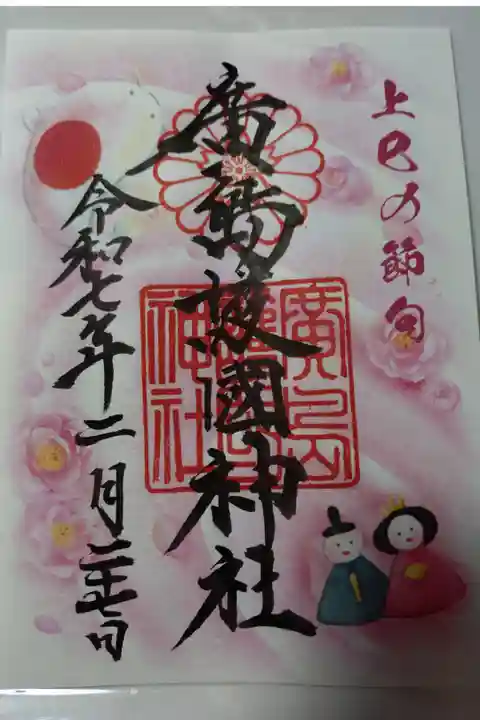 上巳の節句
廣島護國神社
廣島
護國
神社
令和七年二月二十七日